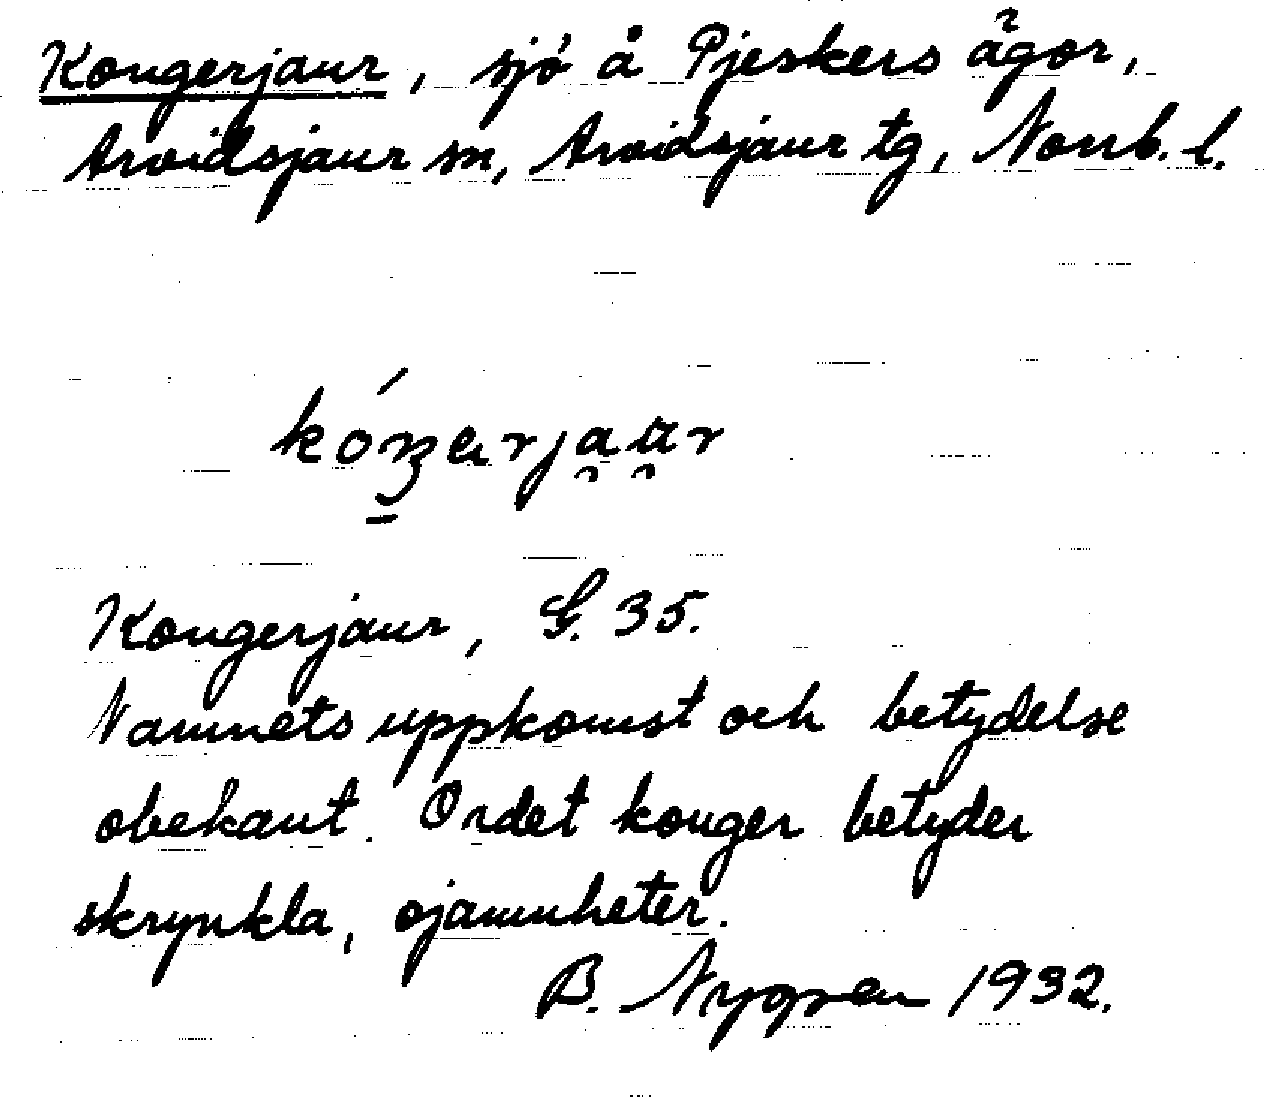 Kongerjaur, sjö å Pjeskers ägor,
Arvidsjaur sn, Arvidsjaur tg, Norrb. l.
Kongerjaur, G. 35.
Namnets uppkomst och betydelse
obekant. Ordet konger betyder
skrynkla, ojämnheter.
B. Nygren 1932.